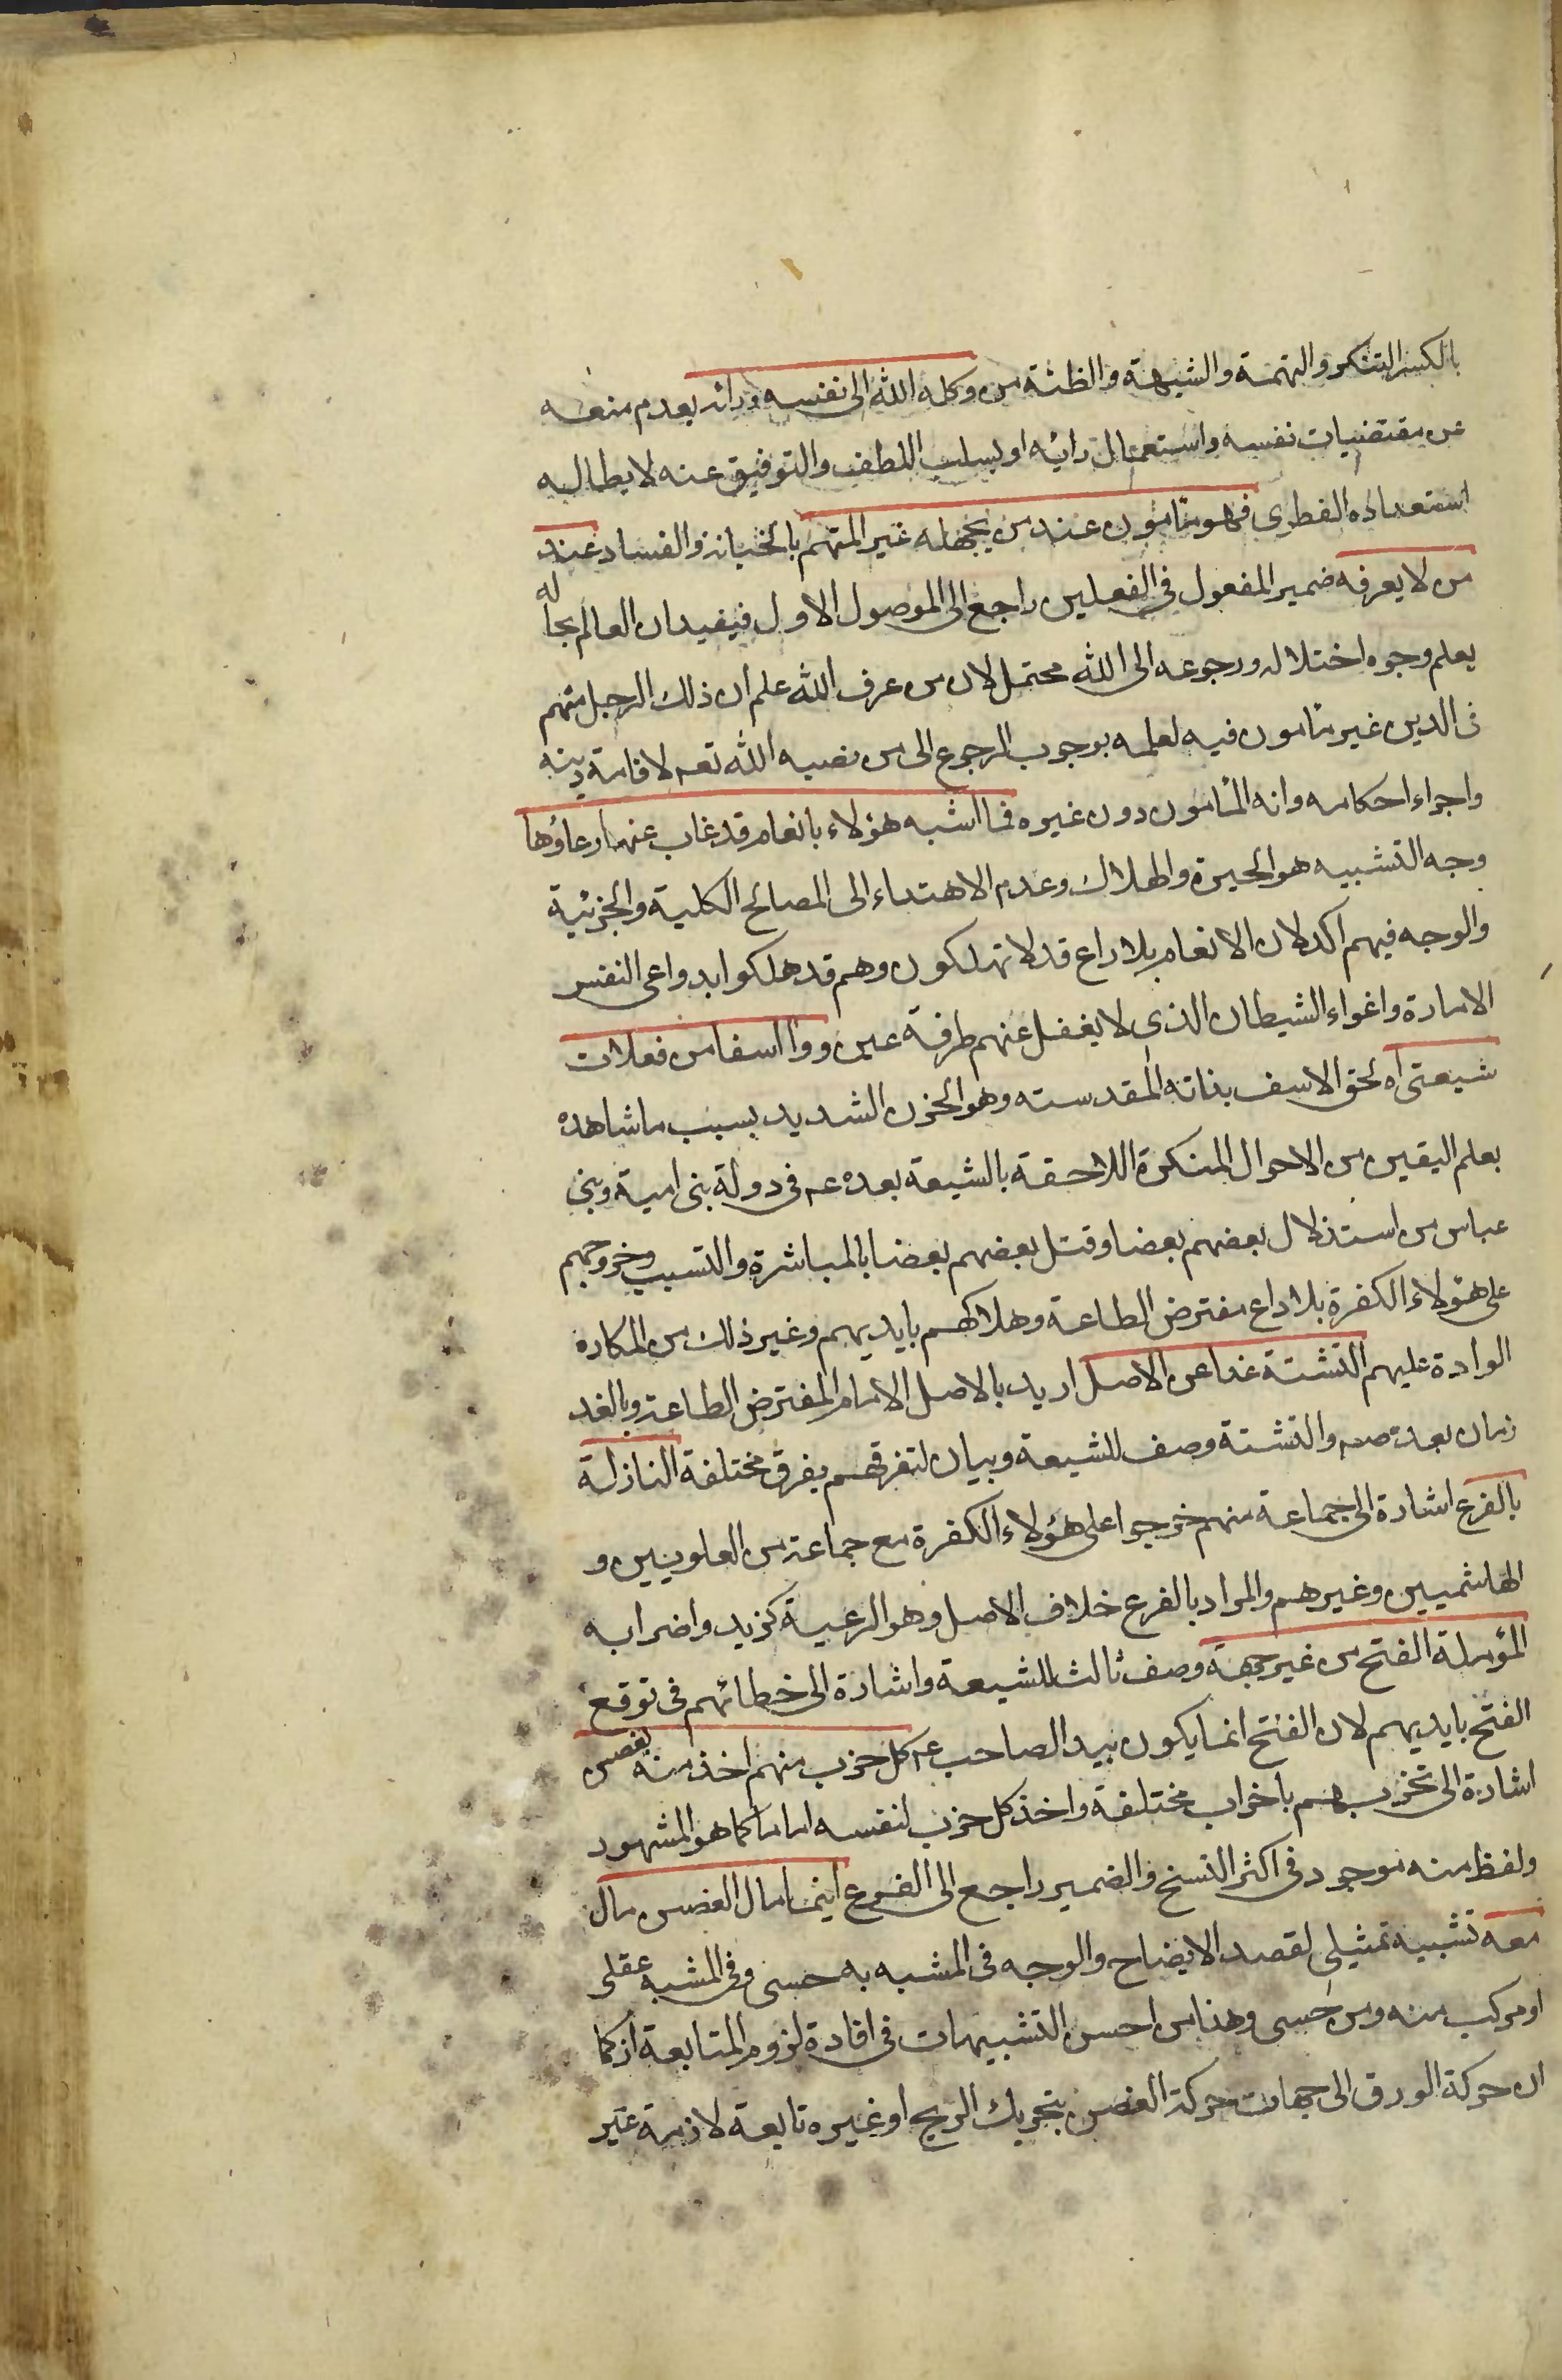 بالكسر التنكر والتهمة والشبهة والظنة من وكله الله الى نفسه ورائه بعدم منعه
عن مقتضيات نفسه واستعمال رائه او بسلب اللطف والتوفيق عنه لابطاله
استعداده الفطرى فهو مأمون عند من يجهله غير المتهم بالخيانة والفساد عند
من لا يعرفه ضمير المفعول فى الفعلين راجع الى الموصول الاول فيفيد ان العالم بحاله
يعلم وجوه اختلاله ورجوعه الى الله محتمل لان من عرف الله علم ان ذلك الرجل متهم
فى الدين غير مأمون فيه لعلمه بوجوب الرجوع الى من نصبه الله تعه لاقامة دينه
واجراء احكامه وانه المأمون دون غيره فما اشبه هؤلاء بانعام قد غاب عنها رعاؤها
وجه التشبيه هو الحيرة والهلاك وعدم الاهتداء الى المصالح الكلية والجزئية
والوجه فيهم اكد لان الانعام بلا راع قد لا تهلكون وهم قد هلكوا بدواعى النفس
الامارة واغواء الشيطان الذى لا يغفل عنهم طرفة عين ووا اسفا من فعلات
شيعتى اه لحق الاسف بذاته المقدسته وهو الحزن الشديد بسبب ما شاهده
بعلم اليقين من الاحوال المنكرة اللاحقة بالشيعة بعده عه فى دولة بنى امية وبنى
عباس من استذلال بعضهم بعضا وقتل بعضهم بعضا بالمباشرة والتسبيب وخروجهم
على هؤلاء الكفرة بلا داع مفترض الطاعة وهلاكهم بايديهم وغير ذلك من المكاره
الوادة عليهم التشتة غدا عن الاصل اريد بالاصل الامام المفترض الطاعة وبالغد
زمان بعده صه والتشتة وصف للشيعة وبيان لتفرقهم بفرق مختلفة النازلة
بالفرع اشارة الى جماعة منهم خرجوا على هؤلاء الكفرة مع جماعة من العلويين و
الهاشميين وغيرهم والمراد بالفرع خلاف الاصل وهو الرعية كزيد واضرابه
المؤملة الفتح من غير جهة وصف ثالث للشيعة واشارة الى خطائهم فى توقع
الفتح بايديهم لان الفتح انما يكون بيد الصاحب عه كل حزب منهم اخذ منه بغصن
اشارة الى تحزبهم باحزاب مختلفة واخذ كل حزب لنفسه اماما كما هو المشهور
ولفظ منه موجود فى اكثر النسخ والضمير راجع الى الفرع اينما مال الغصن مال
معه تشبيه تمثيلى لقصد الايضاح والوجه فى المشبه به حسى وفى المشبه عقلى
او مركب منه ومن حسى وهذا من احسن التشبيهات فى افادة لزوم المتابعة اذ كما
ان حركة الورق الى جهات حركة الغصن بتحريك الريح او غيره تابعة لازمة غير